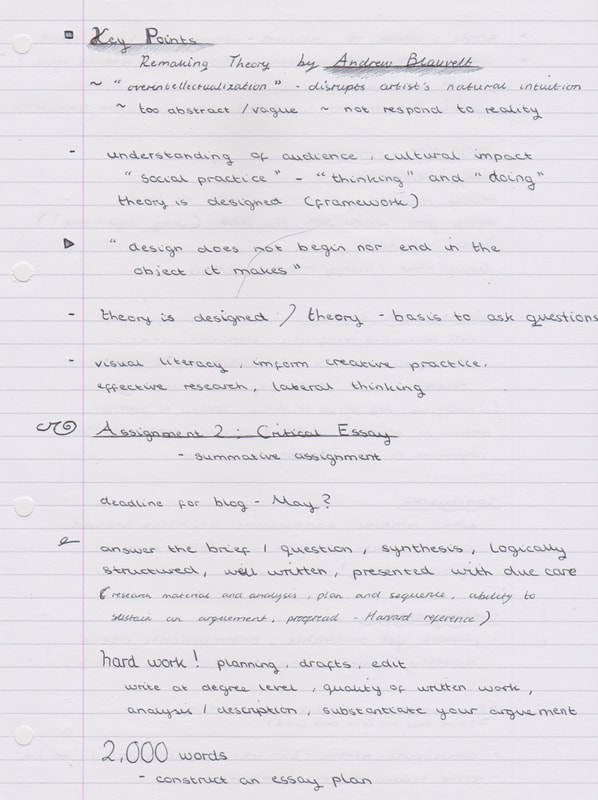 Key Points
Remaking Theory by Andrew Blauvelt
~ "overintellectualization" - disrupts artist's natural intuition
~ too abstract / vague ~ not respond to reality
- understanding of audience, cultural impact
"social practice" - "thinking" and "doing"
theory is designed (framework)
"design does not begin nor end in the
object it makes"
- theory is designed / theory - basis to ask questions
- visual literacy, imform creative practice,
effective research, lateral thinking
Assignment 2: Critical Essay
- summative assignment
deadline for blog - May?
answer the brief / question, synthesis, logically
structured, well written, presented with due care
(research material and analysis, plan and sequence, ability to
sustain an arguement, proofread - Harvard reference)
hard work! planning, drafts, edit
write at degree level, quality of written work,
analysis / description, substantiate your arguement
2,000 words
- construct an essay plan